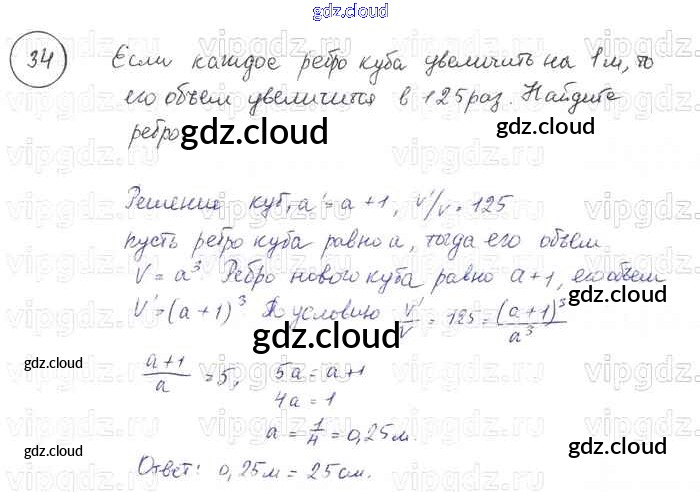 gdz.cloud
34 Если каждое ребро куба увеличить на 1м, то
его объем увеличится в 125 раз. Найдите
ребро
gdz.cloud
gdz.cloud
Решение куб, a' = a+1, V'/V = 125
пусть ребро куба равно a, тогда его объем
V = a³ Ребро нового куба равно a+1, его объем
V' = (a+1)³ По условию V'/V = 125 = (a+1)³/a³
gdz.cloud
gdz.cloud
gdz.cloud
(a+1)/a = 5, 5a = a+1
4a = 1
a = 1/4 = 0,25м.
gdz.cloud
gdz.cloud
gdz.cloud
Ответ: 0,25м = 25см.